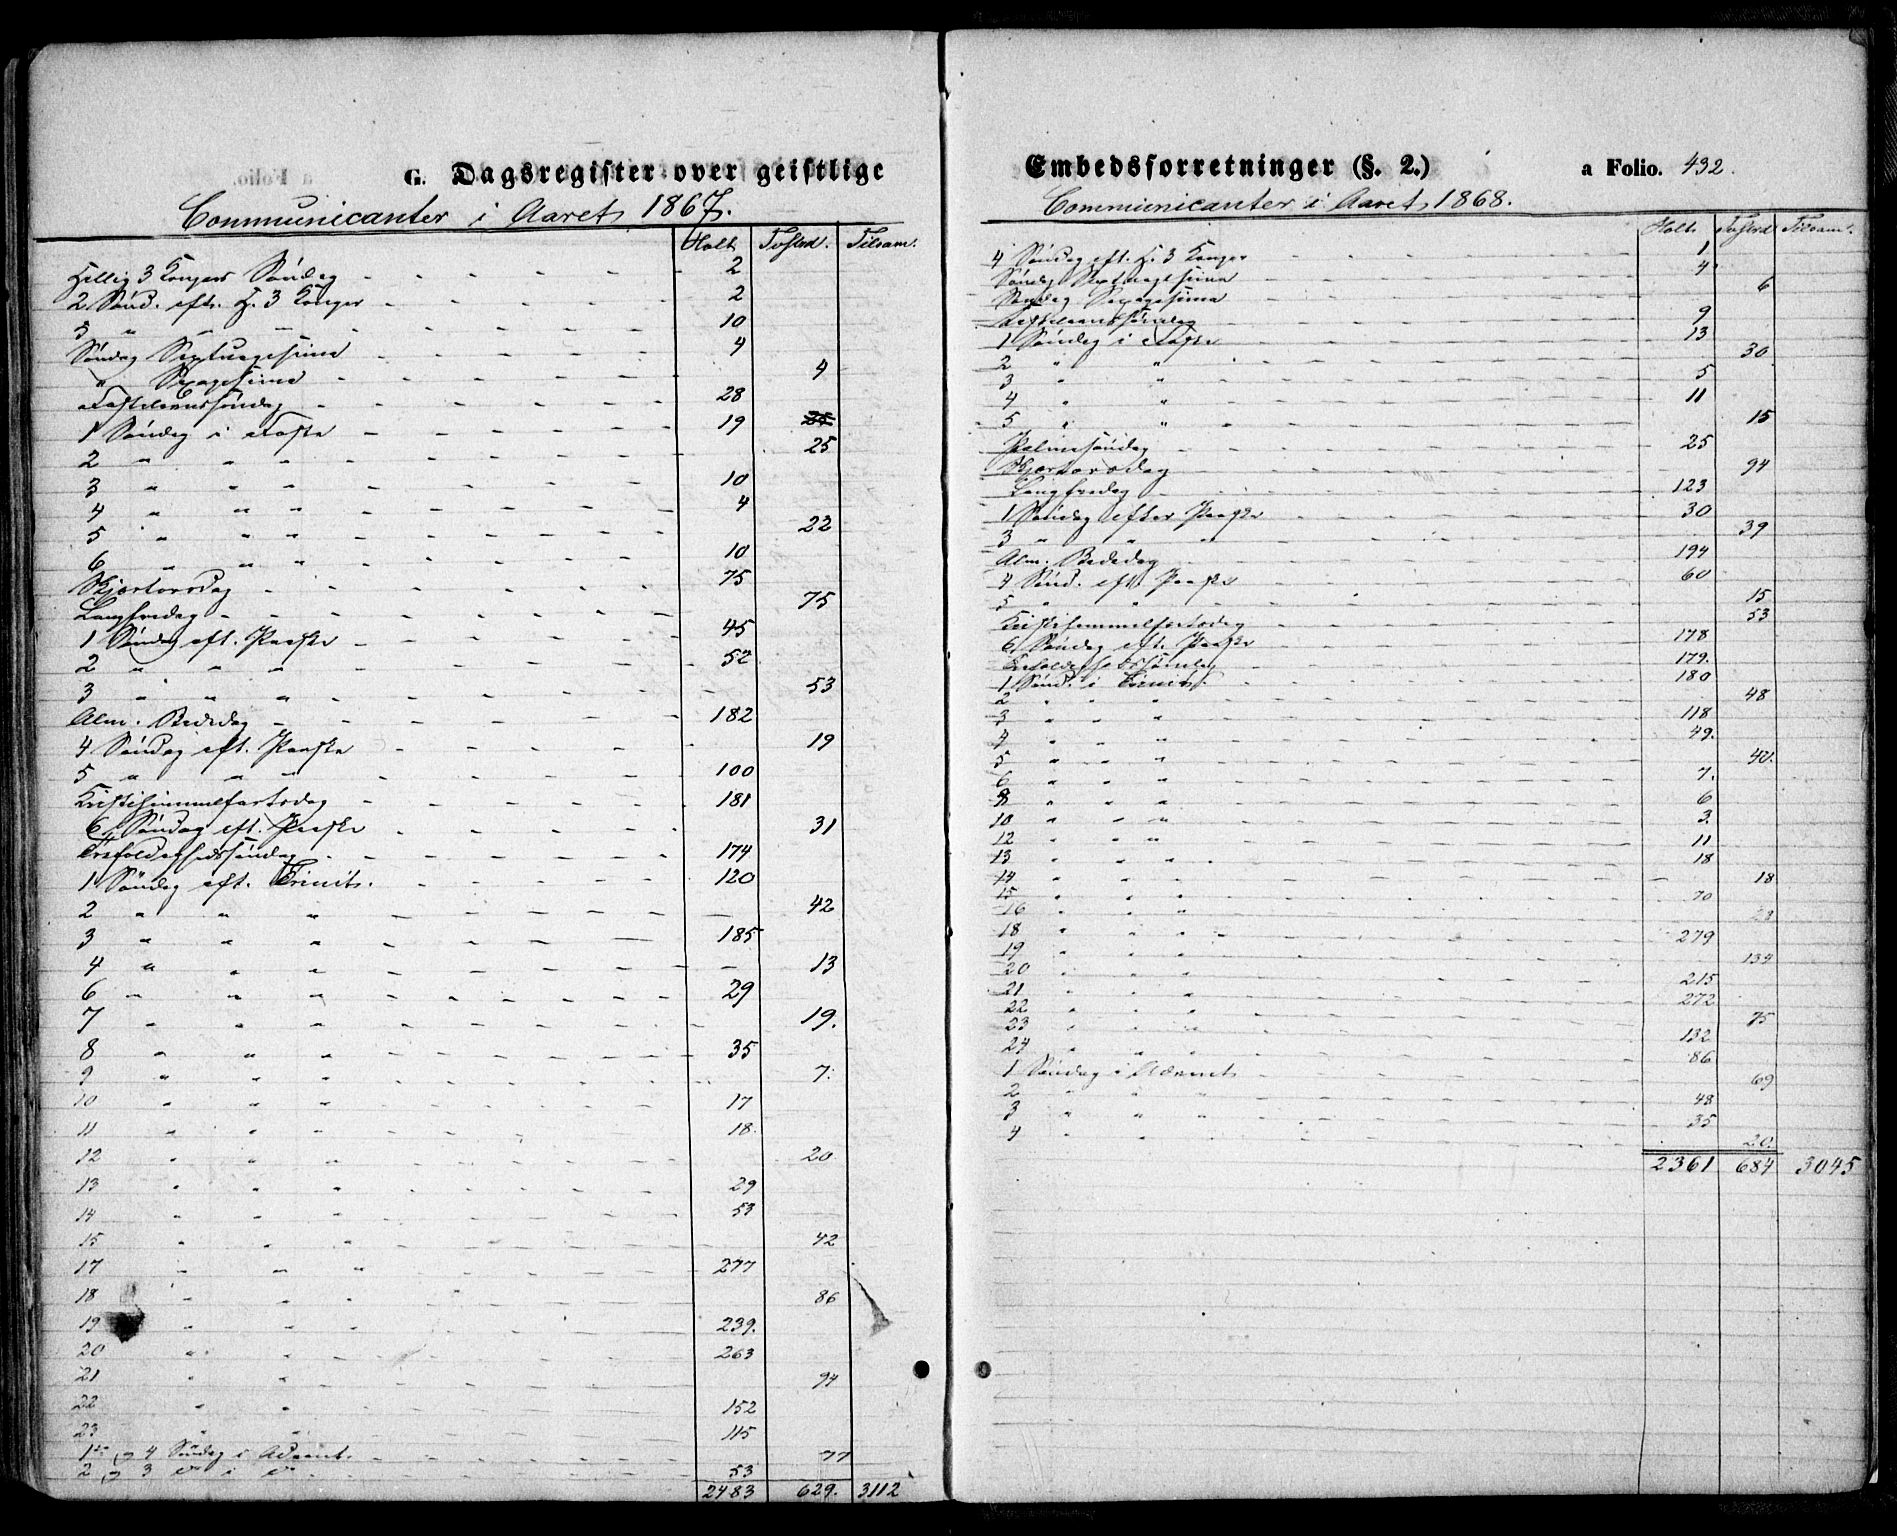 G. Dagsregister over geistlige
Communicanter i Aaret 1867.
Holt Tvedestrd. Tilsam.
Hellig 3 Kongers Søndag - - - - - 2
2 Sønd. eft. H. 3 Konger - - - - - 2
3 " " " 10
Søndag Septuagesima - - - - - 4
" Sexagesima - - - - - 4
Fastelavnssøndag - - - - - 28
1 Søndag i Faste - - - - - 19 25
2 " " " - - - - - 25
3 " " " - - - - - 10
4 " " " - - - - - 4
5 " " " - - - - - 22
6 " " " - - - - - 10
Skjærtorsdag - - - - - 75
Langfredag - - - - - 75
1 Søndag eft. Paaske - - - - - 45
2 " " " - - - - - 52
3 " " " - - - - - 53
Alm. Bededag - - - - - 182
4 Søndag eft. Paaske - - - - - 19
5 " " " - - - - - 100
Kristihimmelfartsdag - - - - - 181
6 Søndag eft. Paaske - - - - - 31
Trefoldighedssøndag - - - - - 174
1 Søndag eft. Trinit. - - - - - 120
2 " " " - - - - - 42
3 " " " - - - - - 185
4 " " " - - - - - 13
6 " " " - - - - - 29
7 " " " - - - - - 19.
8 " " " - - - - - 35
9 " " " - - - - - 7.
10 " " " - - - - - 17
11 " " " - - - - - 18.
12 " " " - - - - - 20
13 " " " - - - - - 29
14 " " " - - - - - 53
15 " " " - - - - - 42
17 " " " - - - - - 277
18 " " " - - - - - 86
19 " " " - - - - - 239.
20 " " " - - - - - 263
21 " " " - - - - - 94
22 " " " - - - - - 152
23 " " " - - - - - 115
1ste og 4 Søndag i Advent. - - - - - 77
2 og 3 do i do - - - - - 53
2483 629. 3112
Embedsforretninger (§. 2.) a Folio. 432.
Communicanter i Aaret 1868.
Holt Tvedestrd Tilsam.
4 Søndag eft. H. 3 Konger - - - - - 1
Søndag Septuagesima - - - - - 4
Søndag Sexagesima - - - - - 6
Fastelavnssøndag - - - - - 9
1 Søndag i Faste - - - - - 13
2 " " - - - - - 30
3 " " - - - - - 5
4 " " - - - - - 11
5 " " - - - - - 15
Palmesøndag - - - - - 25
Skjærtorsdag - - - - - 94
Langfredag - - - - - 123
1 Søndag efter Paaske - - - - - 30
3 " " " - - - - - 39
Alm. Bededag - - - - - 194
4 Sønd. eft. Paaske - - - - - 60
5 " " " - - - - - 15
Kristihimmelfartsdag - - - - - 53
6 Søndag eft. Paaske - - - - - 178
Trefoldighedssøndag - - - - - 179.
1 Sønd. i Trinit. - - - - - 180
2 " " " - - - - - 48
3 " " " - - - - - 118
4 " " " - - - - - 49.
5 " " " - - - - - 40.
6 " " " - - - - - 7.
8 " " " - - - - - 6
10 " " " - - - - - 3.
12 " " " - - - - - 11
13 " " " - - - - - 18
14 " " " - - - - - 18
15 " " " - - - - - 70
16 " " " - - - - - 23
18 " " " - - - - - 279
19 " " " - - - - - 134
20 " " " - - - - - 215
21 " " " - - - - - 272
22 " " " - - - - - 75
23 " " " - - - - - 132
24 " " " - - - - - 86
1 Søndag i Advent - - - - - 69
2 " " " - - - - - 48
3 " " " - - - - - 35
4 " " " - - - - - 20.
2361 684 3045